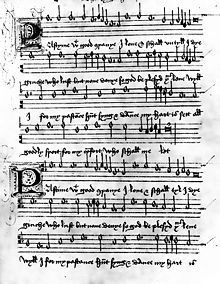 Pastyme wt good companye I love & schall untyll I dye
gruche who lust but none denye so god be plesyd thus leve wyll
I for my pastance hunt syng & dance my hart is sett all
goodly sport for my comfort who schall me let
Pastyme wt good companye I love & schall untyll I dye
gruche who lust but none denye so god be plesyd thus leve
wyll I for my pastance hunt syng & dance my hart is